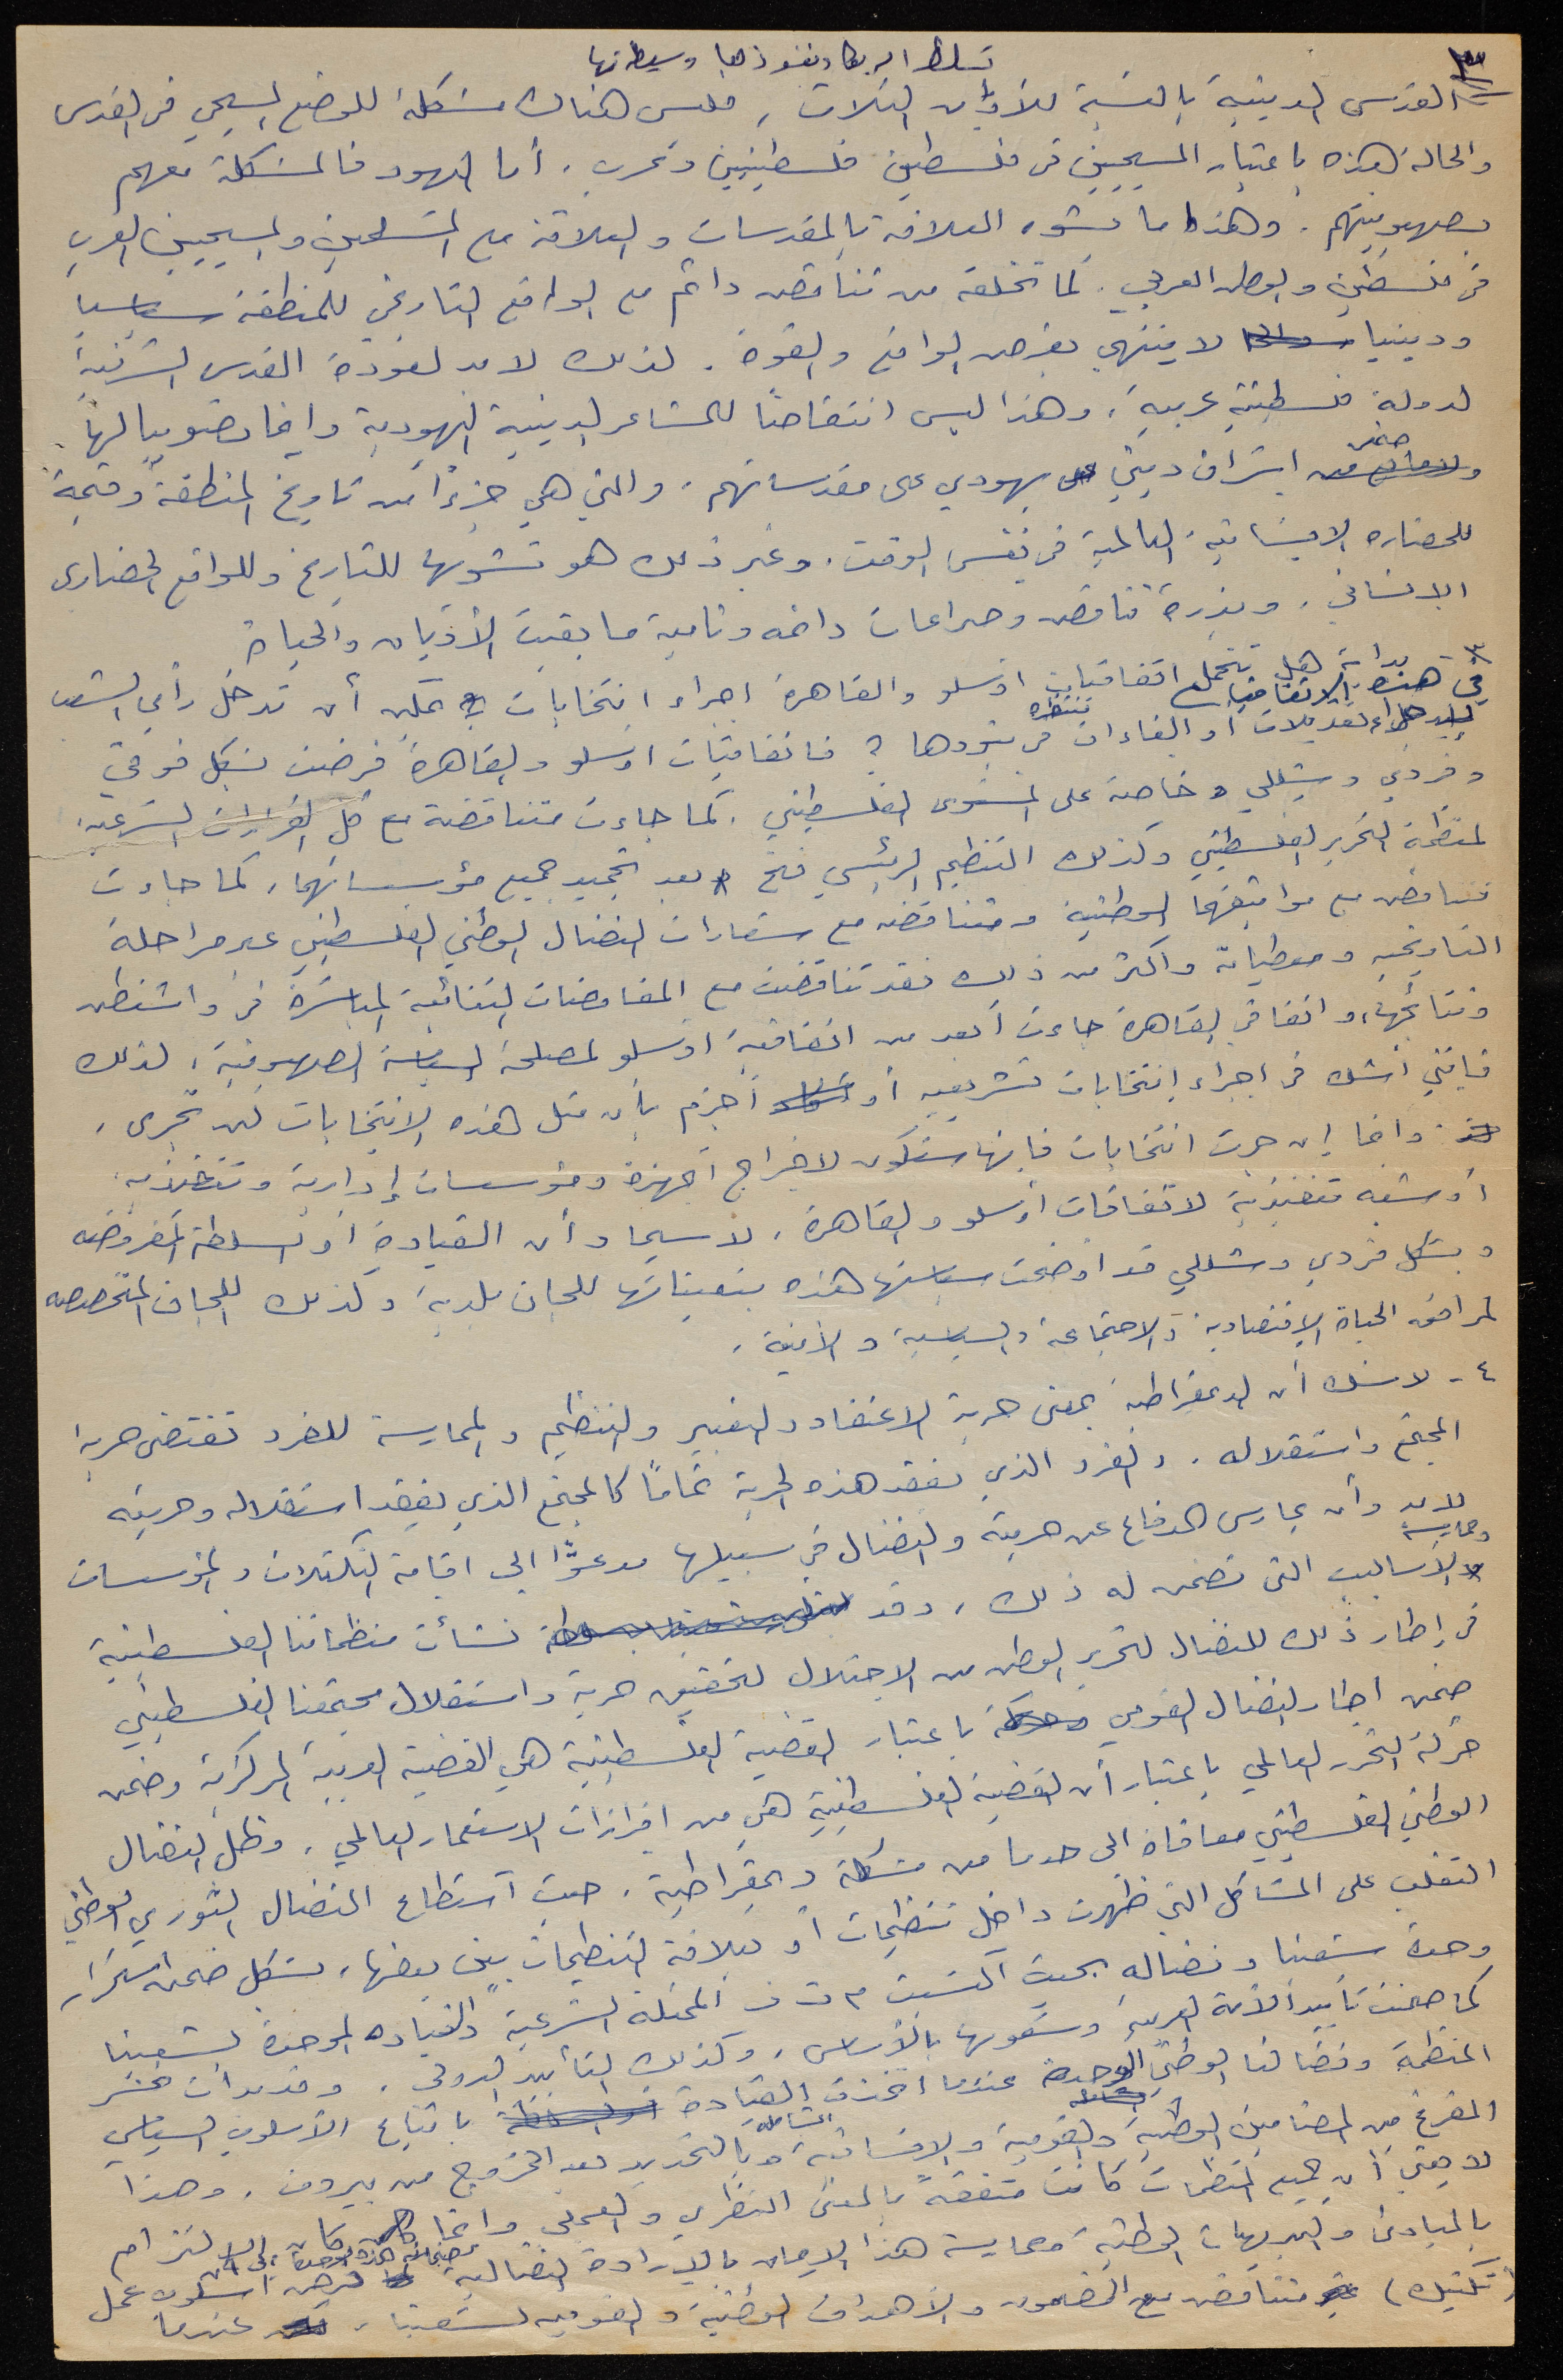 تسلط أمريكا ونفوذها وسيطرتها
٣
القدس الدينية بالنسبة للأديان الثلاث، فليس هناك مشكلة للوضع المسيحي في القدس
والحالة هذه باعتبار المسيحيين في فلسطين فلسطينيين وعرب. أما اليهود فالمشكلة معهم
بصهيونيتهم. وهذا ما يشوه العلاقة بالمقدسات والعلاقة مع المسلمين والمسيحيين العرب
في فلسطين والوطن العربي. كما تخلقه من تناقض دائم مع الواقع التاريخي للمنطقة سياسيا
ودينيا لا ينتهي بفرض الواقع والقوة. لذلك لا بد لعودة القدس الشرقية
لدولة فلسطينية عربية، وهذا ليس انتقاصاً للمشاعر الدينية اليهودية وانما تصويبا لها
ضمن اشراف ديني يهودي على مقدساتهم، والتي هي جزءاً من تاريخ المنطقة وقيمة
للحضاره الانسانية العالمية في نفس الوقت. وغير ذلك هو تشويها للتاريخ وللواقع الحضاري
الانساني، وبذرة تناقض وصراعات دائمه ونامية ما بقيت الأديان والحياة
٣ - بداية هل تتحمل اتفاقيات اوسلو والقاهرة اجراء انتخابات يمكن أن تدخل رأي الشعب
في هذه الاتفاقيات
لإجراء تعديلات أو الغاءات منتظره في بنودها؟ فاتفاقيات اوسلو والقاهرة فرضت بشكل فوقي
وفردي وشللي وخاصة على المستوى الفلسطيني. كما جاءت متناقضة مع كل القرارات الشرعية
لمنظمة التحرير الفلسطيني وكذلك التنظيم الرئيسي فتح بعد تجميد جميع مؤسساتهما، كما جاءت
تتناقض مع مواثيقهما الوطنية ومتناقضه مع شعارات النضال الوطني الفلسطيني عبر مراحله
التاريخيه ومعطياته واكثر من ذلك فقد تناقضت مع المفاوضات الثنائية المباشرة في واشنطن
ونتائجها، واتفاق القاهرة جاءت أبعد من اتفاقية اوسلو لمصلحة السياسة الصهيونية، لذلك
فإنني أشك في اجراء انتخابات تشريعيه أو أجزم بأن مثل هذه الانتخابات لن تجرى،
وانما إن جرت انتخابات فإنها ستكون لاخراج أجهزة ومؤسسات إدارية وتنفيذيه
أو شبه تنفيذية لاتفاقات أوسلو والقاهرة، لا سيما وأن القيادة أو السلطة المفروضه
وبشكل فردي وشللي قد أوضحت سياستها هذه بتعييناتها للجان بلدية وكذلك اللجان المتخصصه
لمرافق الحياة الاقتصادية والاجتماعية والسياسية والأمنية.
٤ - لا شك أن الديمقراطية بمعنى حرية الاعتقاد والتعبير والتنظيم والممارسة للفرد تقتضي حرية
المجتمع واستقلاله. والفرد الذي يفقد هذه الحرية تماماً كالمجتمع الذي يفقد استقلاله وحريته
لا بد وأن يمارس الدفاع عن حريته والنضال في سبيلها مدعوّاً الى اقامة التكتلات والمؤسسات
وممارسة الأساليب التي تضمن له ذلك، وقد نشأت منظماتنا الفلسطينية
في إطار ذلك للنضال لتحرير الوطن من الاحتلال لتحقيق حرية واستقلال مجتمعنا الفلسطيني
ضمن اطار النضال القومي باعتبار القضية الفلسطينية هي القضية العربية المركزية وضمن
حركة التحرر العالمي باعتبار أن القضية الفلسطينية هي من افرازات الاستعمار العالمي. وظل النضال
الوطني الفلسطيني معافاة الى حد ما من مشكلة ديمقراطية. حيث استطاع النضال الثوري الوطني
التغلب على المشاكل التي ظهرت داخل تنظيمات أو بعلاقة التنظيمات بين بعضها، بشكل ضمن استمرار
وحدة شعبنا ونضاله بحيث اكتسبت م ت ف الممثلة الشرعية والقياده الموحدة لشعبنا
كما ضمنت تأييد الأمة العربية وشعوبها بالأساس، وكذلك التأييد الدولي. وقد بدأت تخسر
المنظمة ونضالنا الوطني الوحدة عندما اخذت القيادة باتباع الأسلوب السياسي
المفرغ من المضامين الوطنية والقومية والانسانية الشامله وبالتحديد بعد الخروج من بيروت. وهذا
لا يعني أن جميع المنظمات كانت متفقة بالمعنى النظري والعملي وانما كان الالتزام
بالمبادئ والبديهيات الوطنية وممارسة هذا الايمان بالإرادة النضالية فرض اسلوب عمل
(تكتيك) متناقض مع المضمون والأهداف الوطنية والقوميه لشعبنا، عندما